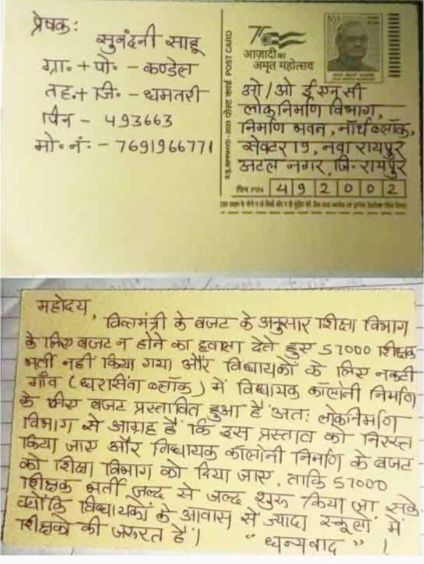 प्रेषक:
सुनंदनी साहू
ग्रा.+पो. - कण्डेल
तह.+ जि. - धमतरी
पिन - 493663
मो.नं. - 7691966771
पोस्ट कार्ड POST CARD
आज़ादी का
अमृत महोत्सव
ओ/ओ ई एन सी
लोकनिर्माण विभाग,
निर्माण भवन, नॉर्थ ब्लॉक,
सेक्टर 19, नवा रायपुर
अटल नगर, जि. रायपुर
पिन PIN 492002
महोदय,
वित्तमंत्री के बजट के अनुसार शिक्षा विभाग
के लिए बजट न होने का हवाला देते हुए 57000 शिक्षक
भर्ती नहीं किया गया और विधायकों के लिए नकटी
गाँव (धरसीवा ब्लॉक) में विधायक कॉलोनी निर्माण
के लिए बजट प्रस्तावित हुआ है अतः लोकनिर्माण
विभाग से आग्रह है कि इस प्रस्ताव को निरस्त
किया जाए और विधायक कालोनी निर्माण के बजट
को शिक्षा विभाग को दिया जाए, ताकि 57000
शिक्षक भर्ती जल्द से जल्द शुरू किया जा सके
क्योंकि विधायकों के आवास से ज्यादा स्कूलों में
शिक्षकों की जरूरत है।
" धन्यवाद " !